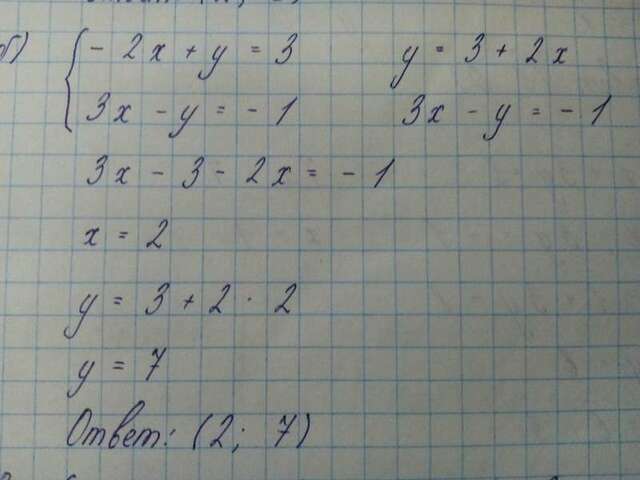 б) - 2x + y = 3 y = 3 + 2x
3x - y = - 1 3x - y = - 1
3x - 3 - 2x = - 1
x = 2
y = 3 + 2 · 2
y = 7
Ответ: (2; 7)